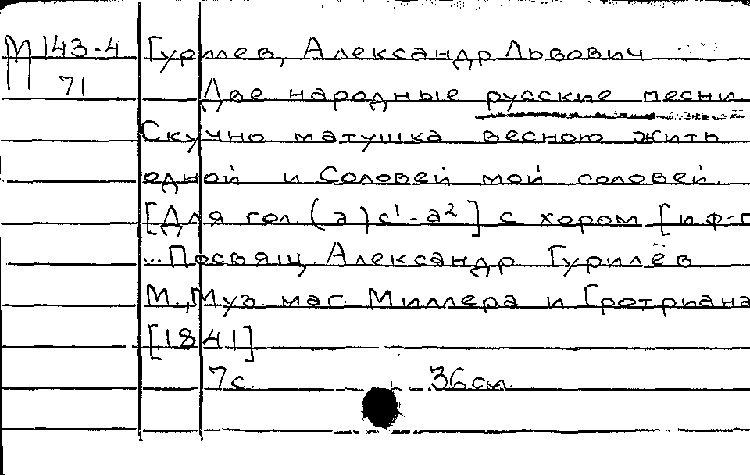 М 143-4 Гурилев, Александр Львович
71 Две народные русские песни
Скучно матушка весною жить
одной и Соловей мой соловей.
[Для гол. (а) с¹-а²] с хором [и ф-п
...Посвящ. Александр Гурилёв
М., Муз. маг. Миллера и Гротриана
[1841]
7 с. 36 см